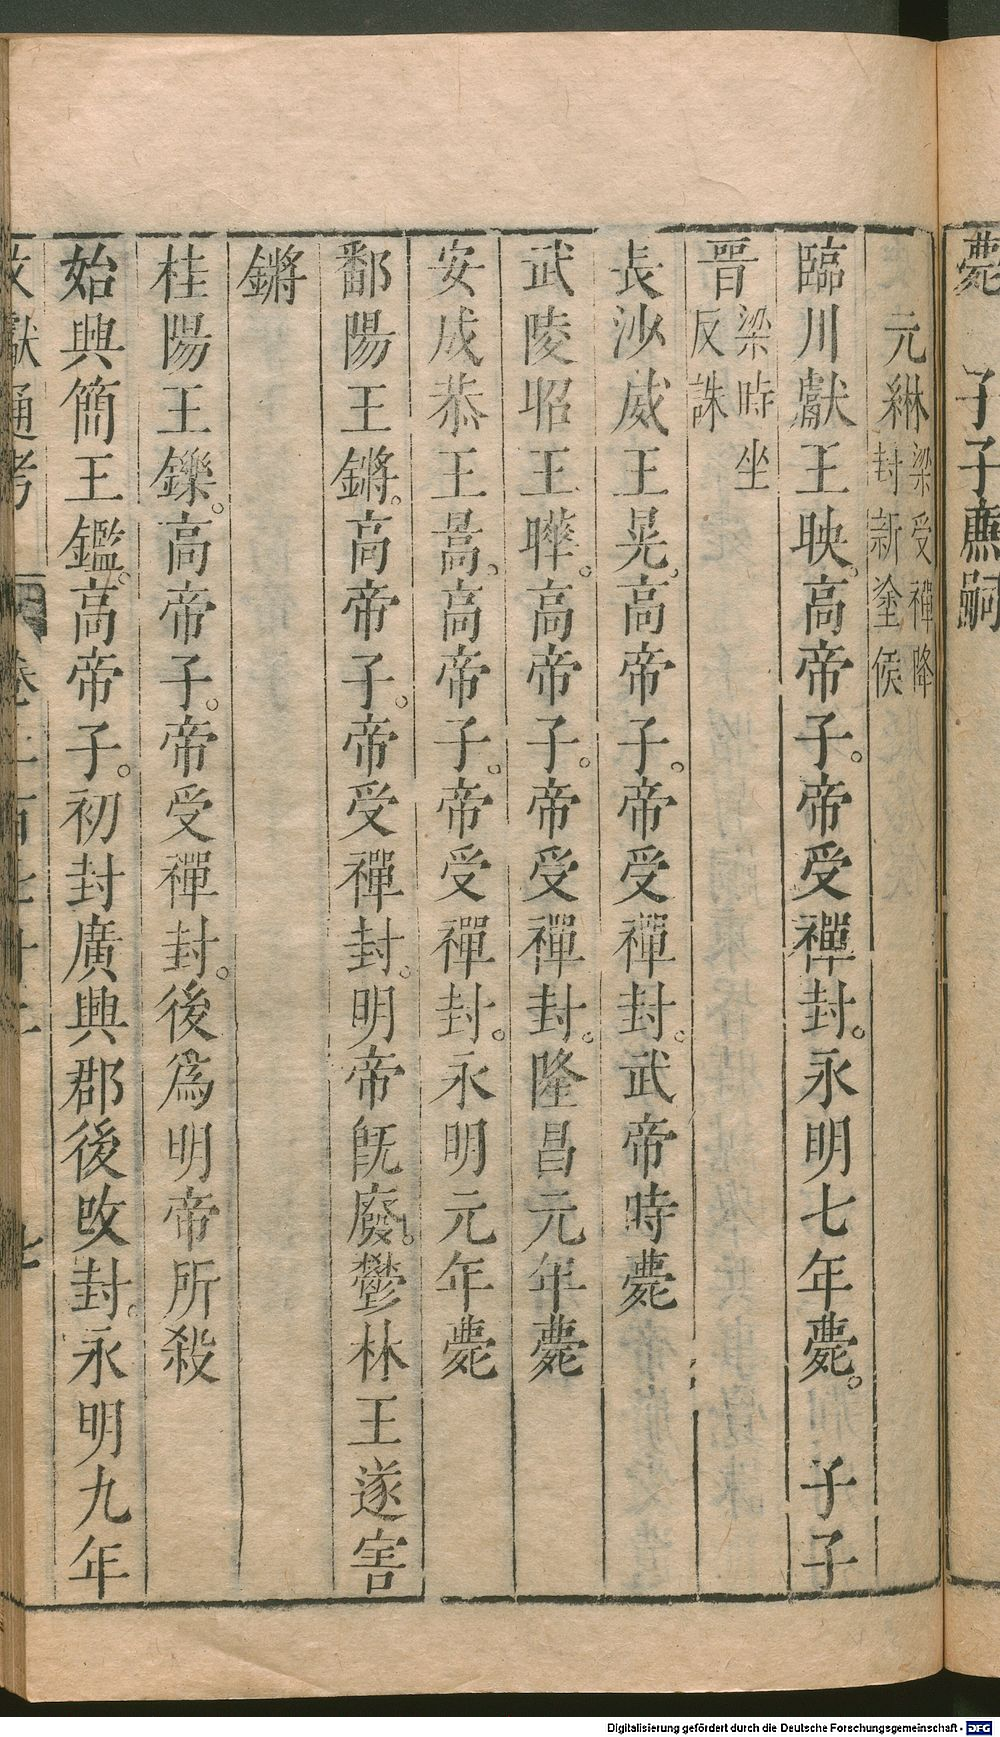 薨　子子廉嗣
元綝梁受禪降封新塗侯
臨川獻王映。高帝子。帝受禪封。永明七年薨。　子子
晋梁時坐反誅
長沙威王晃。高帝子。帝受禪封。武帝時薨
武陵昭王曅。高帝子。帝受禪封。隆昌元年薨
安成恭王暠。高帝子。帝受禪封。永明元年薨
鄱陽王鏘。高帝子。帝受禪封。明帝旣廢。鬱林王遂害
鏘
桂陽王鑠。高帝子。帝受禪封。後爲明帝所殺
始興簡王鑑。高帝子。初封廣興郡後改封。永明九年
文獻通考　卷二百七十二　七
Digitalisierung gefördert durch die Deutsche Forschungsgemeinschaft - DFG